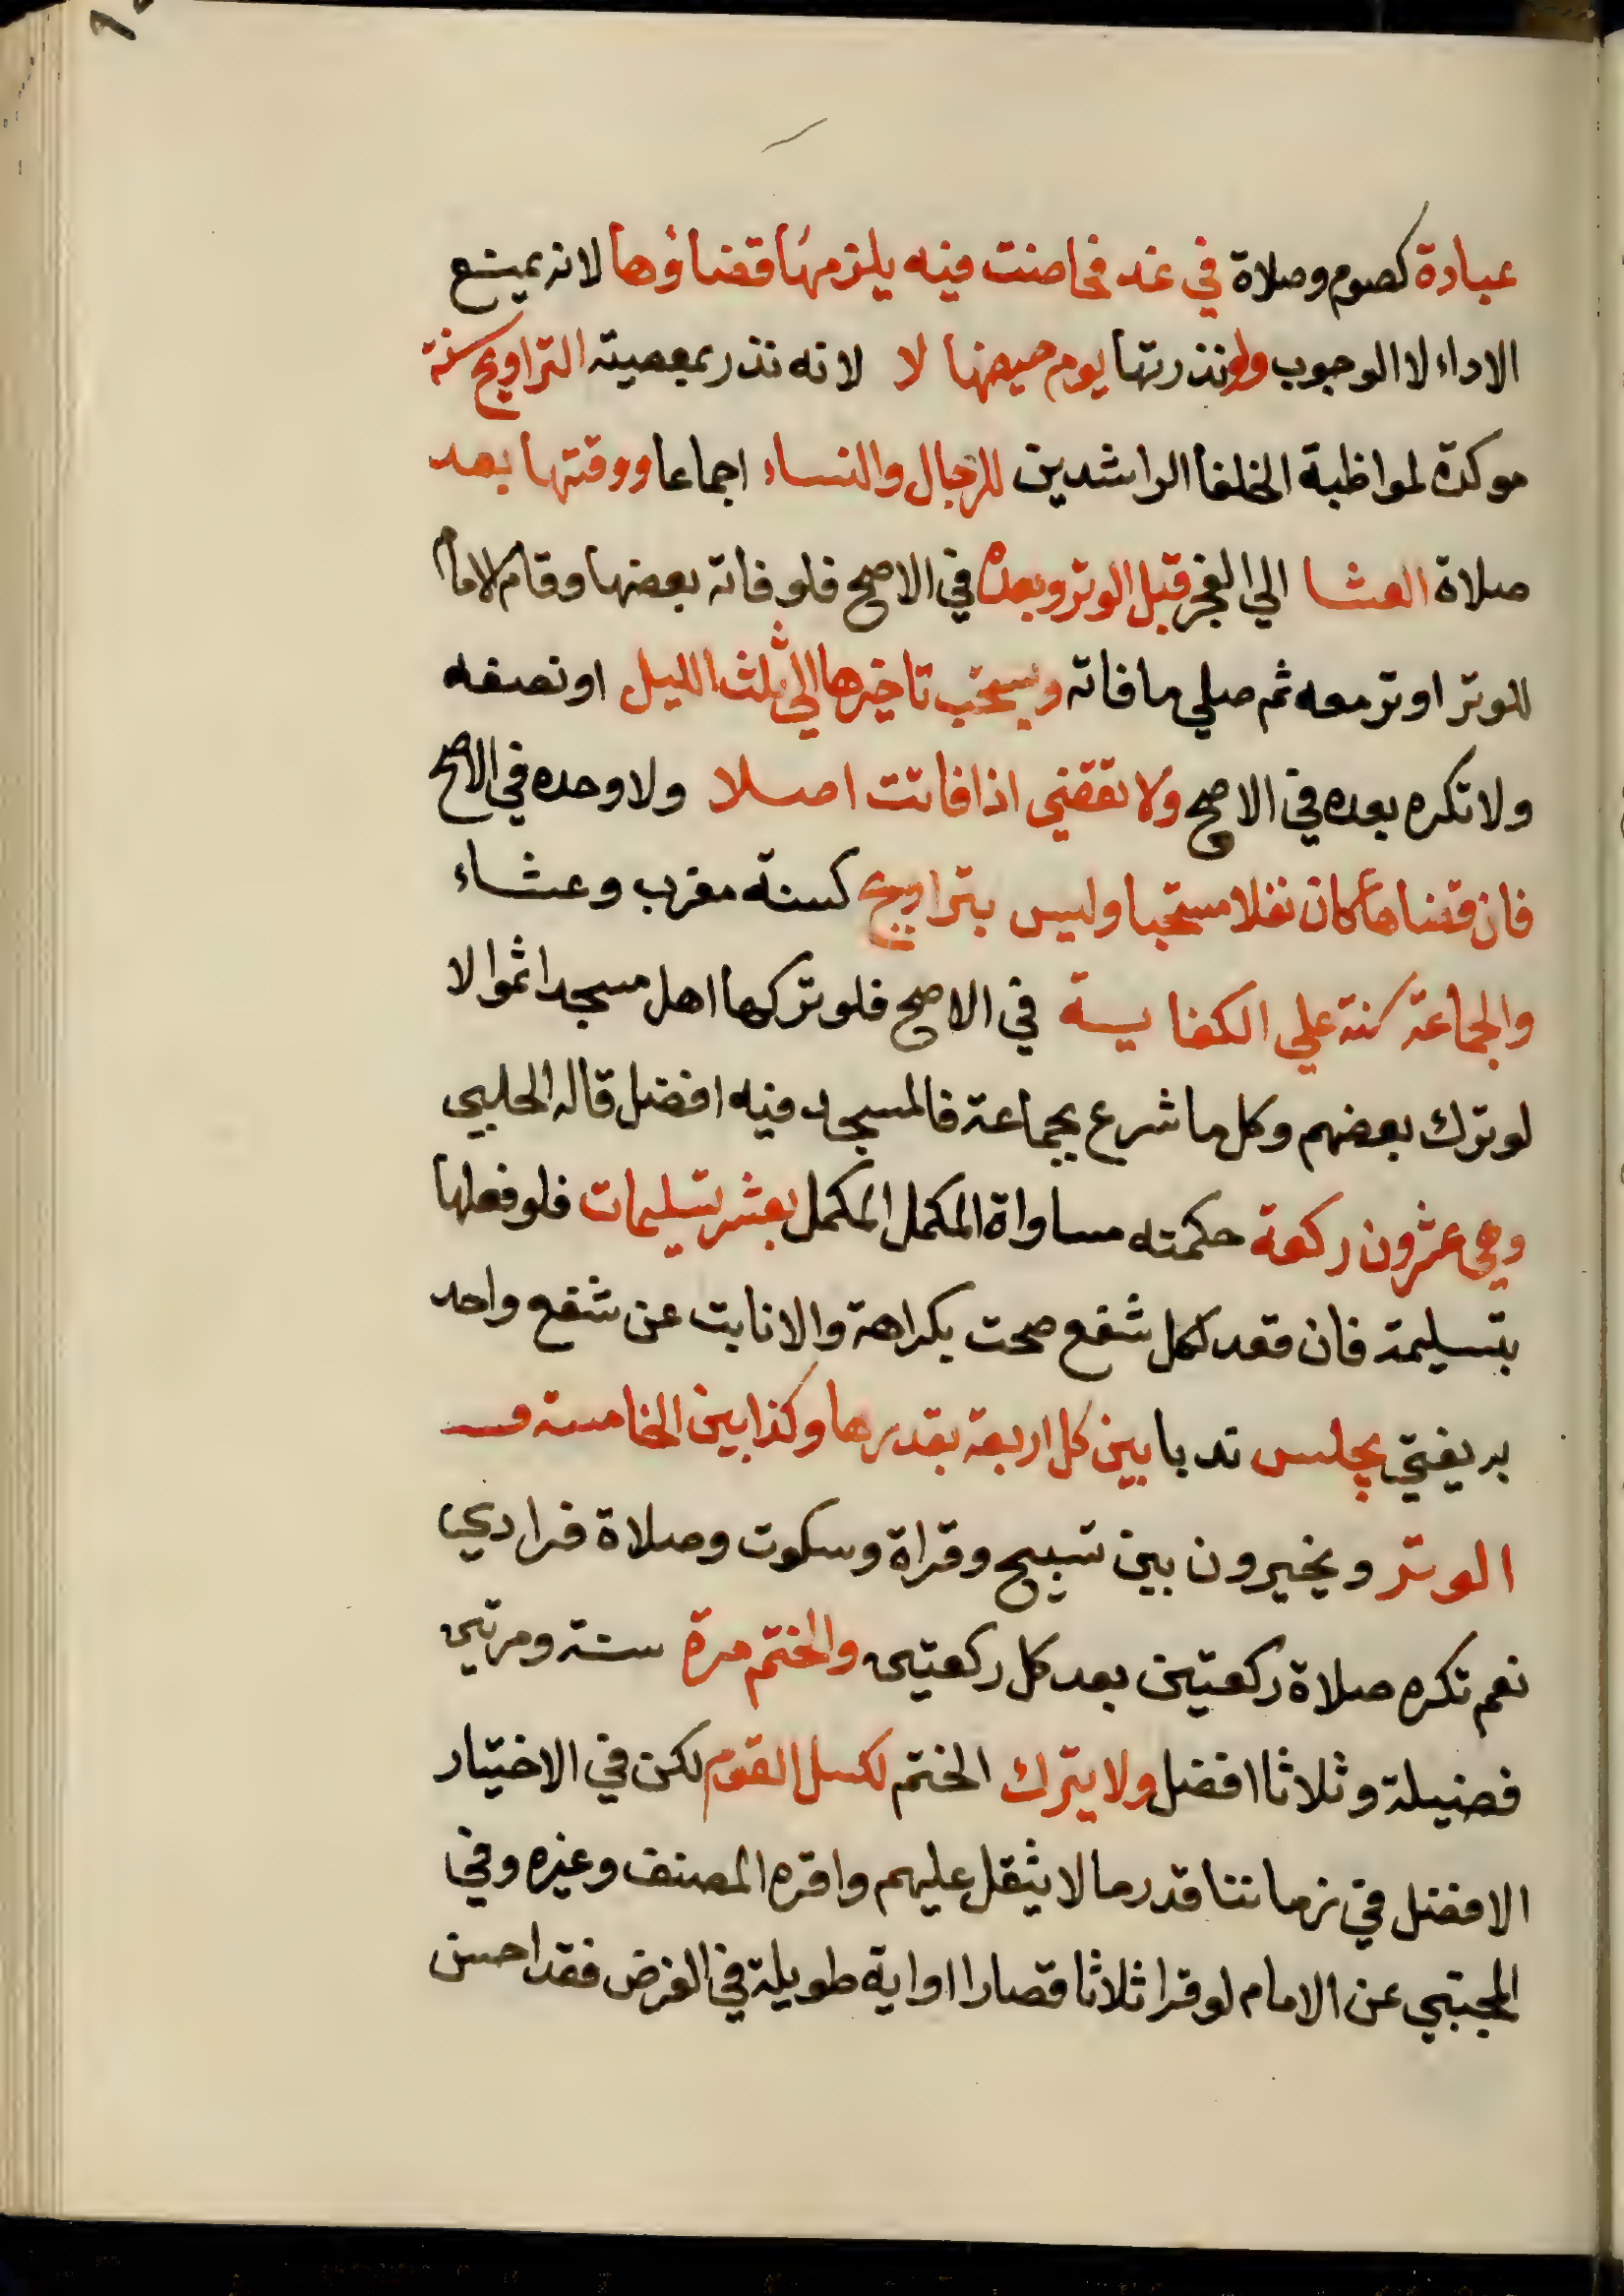 عبادة كصوم وصلاة في غد فحاضت فيه يلزمها قضاؤها لانه يمنع
الاداء لا الوجوب ولو نذرتها يوم حيضها لا لانه نذر بمعصية التراويح سنة
موكدة لمواظبة الخلفا الراشدين للرجال والنساء اجماعا ووقتها بعد
صلاة العشا الي الفجر قبل الوتر وبعده في الاصح فلو فاته بعضها وقام الامام
للوتر اوتر معه ثم صلي ما فاته ويستحب تاخيرها الي ثلث الليل او نصفه
ولا تكره بعده في الاصح ولا تقضي اذا فاتت اصلا ولا وحده في الاصح
فان قضاها كان نفلا مستحبا وليس بتراويح كسنة مغرب وعشاء
والجماعة سنة علي الكفاية في الاصح فلو تركها اهل مسجد اثموا لا
لو ترك بعضهم وكل ما شرع بجماعة فالمسجد فيه افضل قاله الحلبي
وهي عشرون ركعة حكمته مساواة المكمل المكمل بعشر تسليمات فلو فعلها
بتسليمة فان قعد لكل شفع صحت بكراهة والا نابت عن شفع واحد
به يفتي يجلس ندبا بين كل اربعة بقدرها وكذا بين الخامسة و
الوتر ويخيرون بين تسبيح وقراة وسكوت وصلاة فرادي
نعم تكره صلاة ركعتين بعد كل ركعتين والختم مرة سنة ومرتين
فضيلة وثلاثا افضل ولا يترك الختم لكسل القوم لكن في الاختيار
الافضل في زماننا قدر ما لا يثقل عليهم واقره المصنف وغيره وفي
المجتبي عن الامام لو قرا ثلاثا قصارا او اية طويلة في الفرض فقد احسن